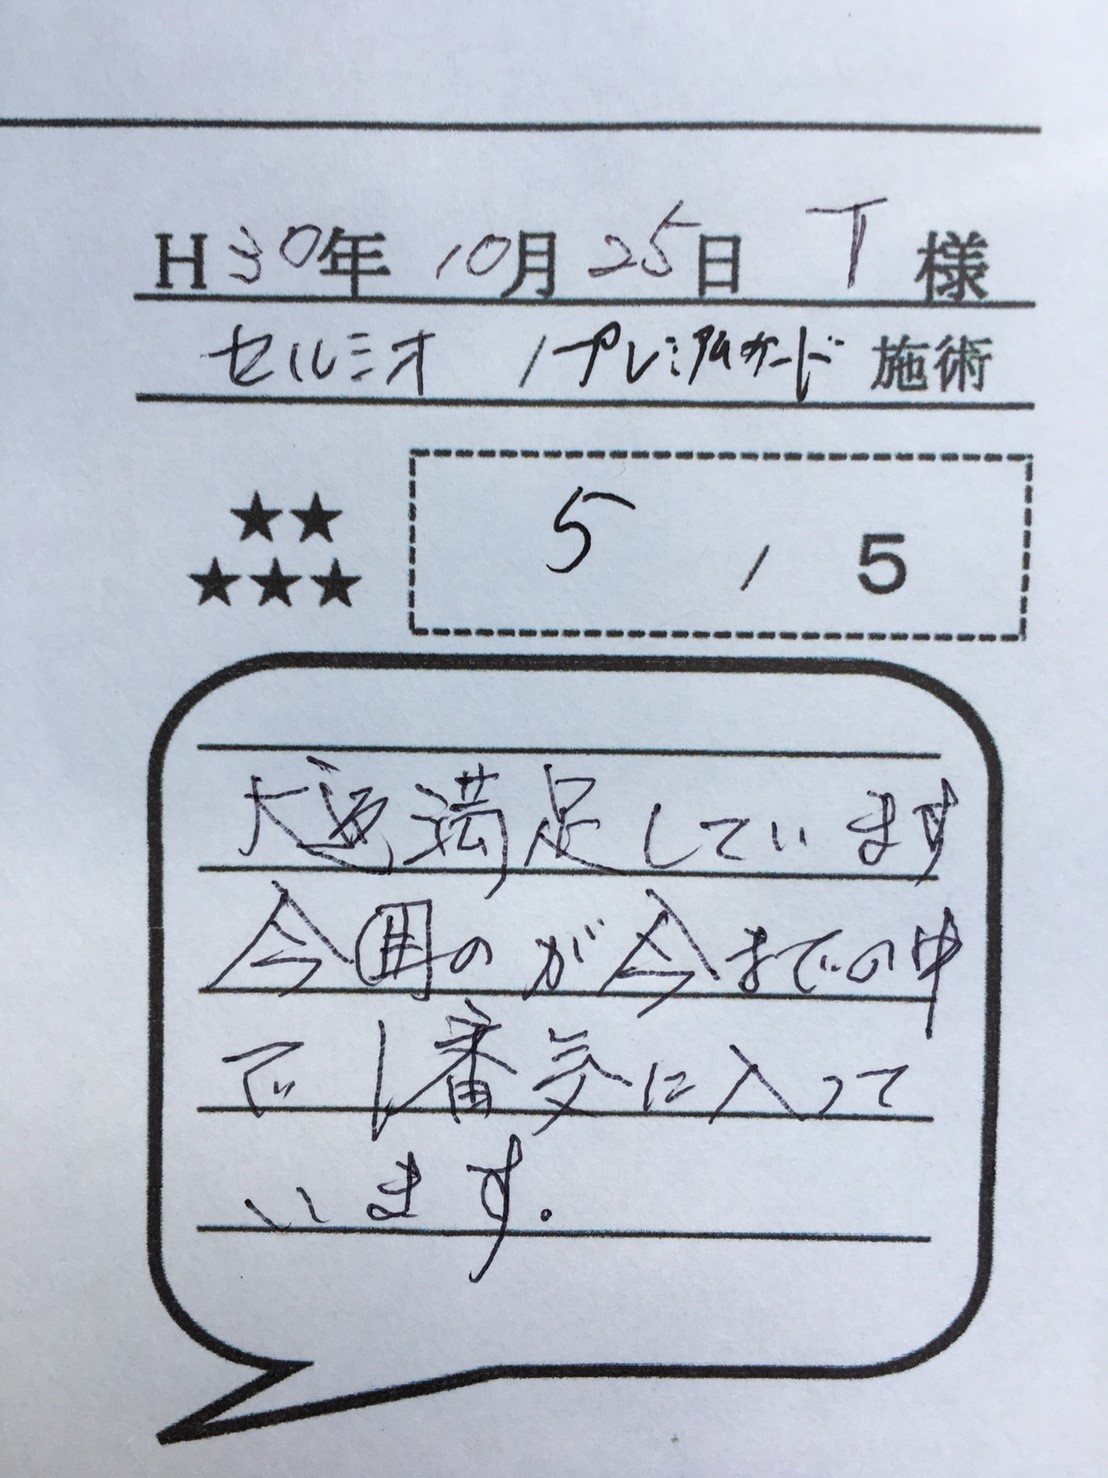 H30年 10月25日 T 様
セルシオ / プレミアムガード 施術
★★
★★★
5 / 5
大変満足しています
今回のが今までの中
で1番気に入って
います。